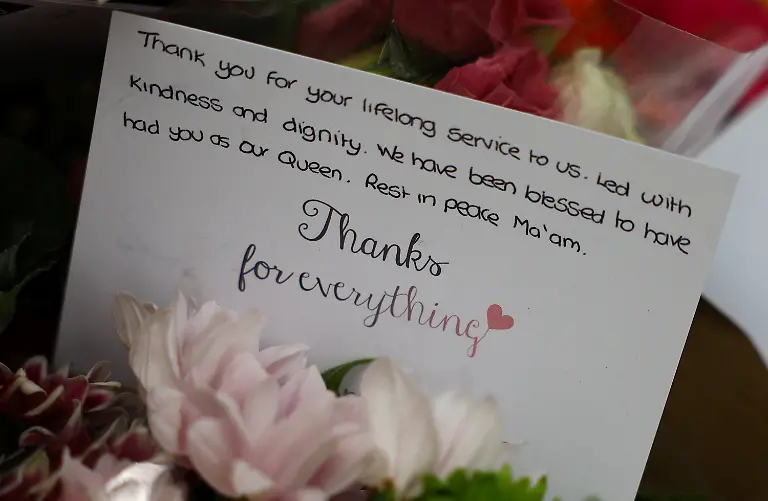 Thank you for your lifelong service to us. Led with
kindness and dignity. We have been blessed to have
had you as our Queen. Rest in peace Ma'am.
Thanks
for everything